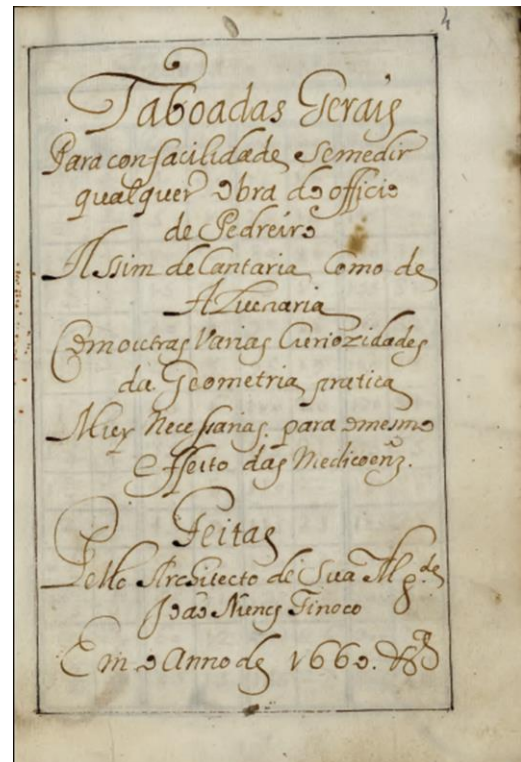 4
Taboadas Gerais
Para con facilidade semedir
qualquer obra do officio
de Pedreiro
Assim de Cantaria Como de
Aluenaria
Com outras Varias Curiozidades
da Geometria pratica
Muy Necessarias para omesmo
effeito das Medicoeñz.
Feitas
Pello Architecto de Sua Mg.de
Joaõ Nunes Tinoco
Em o Anno de 1660.